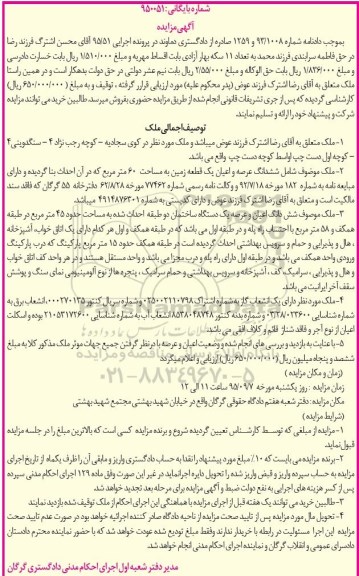 شماره بایگانی: ۹۵۰۰۵۱
آگهی مزایده
بموجب دادنامه شماره ۹۳/۱۰۰۸ و ۱۲۵۹ صادره از دادگستری دماوند در پرونده اجرایی ۹۵/۵۱ آقای محسن اشترگ فرزند رضا
در حق فاطمه سرابندی فرزند محمد به تعداد ۱۱ سکه بهار آزادی بابت اقساط مهریه و مبلغ ۱/۵۱۰/۰۰۰ ریال بابت خسارت دادرسی
و مبلغ ۱/۸۳۶/۰۰۰ ریال بابت حق الوکاله و مبلغ ۲/۵۵۰/۰۰۰ ریال بابت نیم عشر دولتی در حق دولت بدهکار است و در همین راستا
ملک متعلق به آقای رضا اشترک فرزند عوض (پدر محکوم علیه) مورد ارزیابی قرار گرفته، توقیف و به مبلغ (۶۵۰/۰۰۰/۰۰۰ ریال)
کارشناسی گردیده که پس از جری تشریفات قانونی انجام شده از طریق مزایده حضوری بفروش میرسد. طالبین خرید می توانند مزایده
شرکت و پیشنهاد خود را ارائه و تسلیم نمایند.
توصیف اجمالی ملک
۱-ملک متعلق به آقای رضا اشترک فرزند عوض میباشد و ملک مورد نظر در کوی سجادیه - کوچه رجب نژاد ۴ - سنگدوینی ۴
- کوچه اول دست چپ اواسط کوچه دست چپ واقع می باشد.
۲-ملک موصوف شامل ششدانگ عرصه و اعیان یک قطعه زمین به مساحت ۶۰ متر مربع که در آن احداث بنا گردیده و دارای
مبایعه نامه به شماره ۱۸۲ مورخه ۹۲/۷/۱۸ و وکالت نامه رسمی شماره ۷۷۴۶۲ مورخه ۶۲/۸/۲۸ دفترخانه ۵۵ گرگان که فاقد سند
مالکیت است و متعلق به آقای رضا اشترک فرزند عوض و دارای کدپستی به شماره ۴۹۱۴۸۷۶۳۰۱ میباشد
۳-ملک موصوف شش دانگ اعیان و عرصه یک دستگاه ساختمان دو طبقه احداث شده به مساحت حدود ۴۵ متر مربع در طبقه
همکف و ۵۸ متر مربع با احتساب راه پله در طبقه اول می باشد که در طبقه همکف و اول هر کدام دارای یک اتاق خواب، آشپزخانه
، هال و پذیرایی و حمام و سرویس بهداشتی احداث گردیده است در طبقه همکف حدود ۱۵ متر مربع پارکینگ که درب پارکینگ
ورودی واحد همکف می باشد و در طبقه اول دارای راه پله و درب مجزا می باشد و واحد مستقل هستند و در هر واحد کف اتاق خواب
و هال و پذیرایی، سرامیک، کف، آشپزخانه و سرویس بهداشتی و حمام سرامیک، پنجره ها از نوع آلومینیومی نمای سنگ و پوشش
سقف آجر ایرانیت می باشد.
۴-ملک مورد نظر دارای یک انشعاب گاز به شماره اشتراک ۰۲۵۰۰۲۱۱۰۷۹۸ و شماره سریال کنتور ۰۰۰۲۷۰۱۳۵، انشعاب برق به
شماره شناسایی ۰۳/۲۸/۰۲۳۶۰۰ و شماره بدنه کنتور ۸۵۳۸۰۴۸۷۴۸، انشعاب آب به شماره شناسایی ۲۱۰۵۳۱۷۲۶۰۰ بوده و اسکلت
اعیان از نوع آجر و فاقد شناژ قائم و کلاف افقی می باشد.
۵-با عنایت به بازدید و بررسی های انجام شده و وضعیت اعیان با در نظر گرفتن جمیع جهات موثر ملک مذکور کلا به مبلغ
ششصد و پنجاه میلیون ریال (۶۵۰/۰۰۰/۰۰۰ ریال) ارزیابی و اعلام میگردد
(زمان و مکان مزایده)
زمان مزایده: روز یکشنبه مورخه ۹۵/۰۹/۷ ساعت ۱۱ الی ۱۲
مکان مزایده: دفتر شعبه هفتم دادگاه حقوقی گرگان واقع در خیابان شهید بهشتی مجتمع شهید بهشتی
(شرایط مزایده)
۱-مزایده از مبلغی که توسط کارشناس تعیین گردیده شروع و برنده مزایده کسی است که بالاترین مبلغ را در جلسه مزایده
قبول نماید.
۲-برنده مزایده می بایست که ۱۰٪ مبلغ مورد پیشنهاد را نقدا به حساب دادگستری واریز و مابقی آن را ظرف یکماه از تاریخ اجرای
مزایده به حساب سپرده واریز و قبض واریز شده را تحویل دایره اجرا نماید در غیر این صورت وفق ماده ۱۲۹ اجرای احکام مدنی سپرده
پس از کسر هزینه های اجرایی به نفع دولت ضبط و آگهی مزایده برای مرحله بعد تجدید خواهد شد.
۳-طالبین خرید می توانند یک هفته قبل از اجرای مزایده با هماهنگی این اجرای احکام از ملک توقیف شده بازدید نمایند
۴-تحویل مال مورد مزایده پس از تایید صحت مزایده از ناحیه دادگاه صادر کننده اجرائیه خواهد بود در صورت عدم تایید صحت
مزایده این اجرا مسئولیت در رابطه با خریدار ندارد وفقط مبلغ تودیع شده عودت خواهد شد که با حضور نماینده محترم دادستان
دادسرای عمومی و انقلاب گرگان و نماینده اجرای احکام مدنی انجام خواهد شد.
مدیر دفتر شعبه اول اجرای احکام مدنی دادگستری گرگان
۰۲۱-۸۸۳۴۹۶۷۰-۵